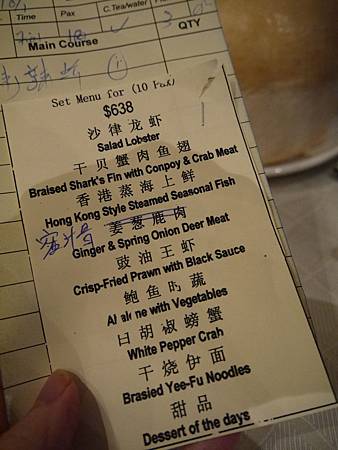 Time
Pax
C.Tea/water
QTY
Main Course
Set Menu for (10 Pax)
$638
沙律龙虾
Salad Lobster
干贝蟹肉鱼翅
Braised Shark's Fin with Conpoy & Crab Meat
香港蒸海上鲜
Hong Kong Style Steamed Seasonal Fish
姜葱鹿肉
Ginger & Spring Onion Deer Meat
豉油王虾
Crisp-Fried Prawn with Black Sauce
鲍鱼旳蔬
with Vegetables
白胡椒螃蟹
White Pepper Crab
干烧伊面
Brasied Yee-Fu Noodles
甜品
Dessert of the days